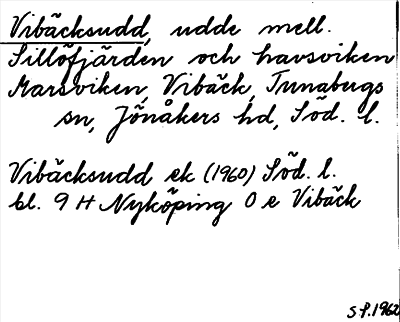 Vibäcksudd, udde mell.
Sillöfjärden och havsviken
Marsviken, Vibäck, Tunabergs
sn, Jönåkers hd, Söd. l.
Vibäcksudd ek (1960) Söd. l.
bl. 9 H Nyköping O e Vibäck
S.P. 1962